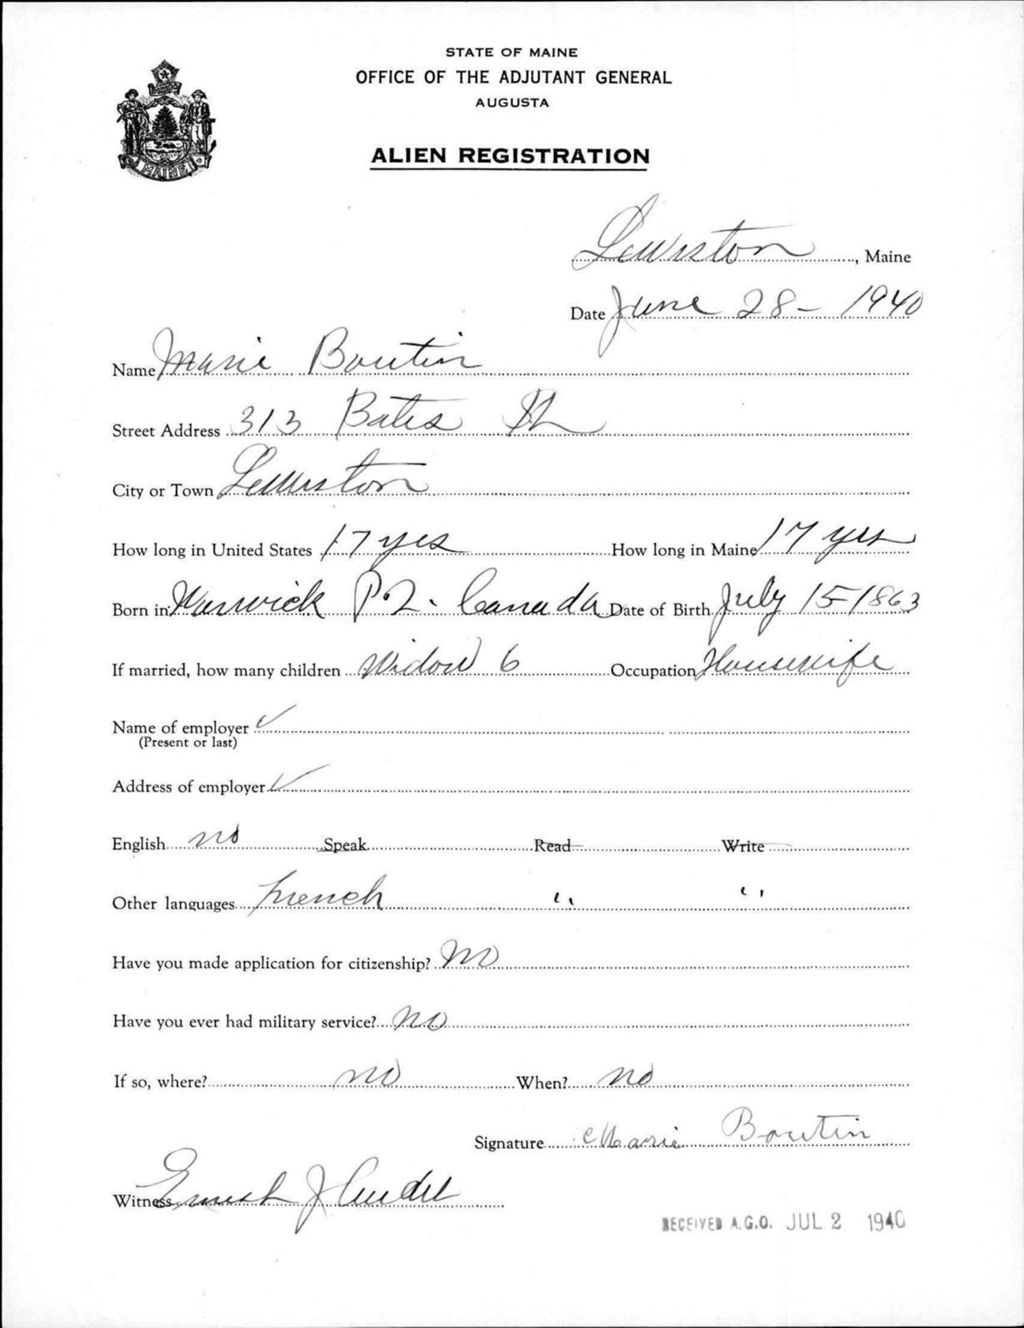 STATE OF MAINE
OFFICE OF THE ADJUTANT GENERAL
AUGUSTA
ALIEN REGISTRATION
MAINE
Lewiston, Maine
Date June 28 - 1940
Name Marie Boutin
Street Address 313 Bates St
City or Town Lewiston
How long in United States 17 yrs How long in Maine 17 yrs
Born in Warwick P.Q. Canada Date of Birth July 15 1863
If married, how many children Widow 6 Occupation Housewife
Name of employer ✓
(Present or last)
Address of employer ✓
English no Speak Read Write
Other languages French " "
Have you made application for citizenship? No
Have you ever had military service? No
If so, where? no When? no
Signature Marie Boutin
Witness Ernest J
RECEIVED A.G.O. JUL 2 1940